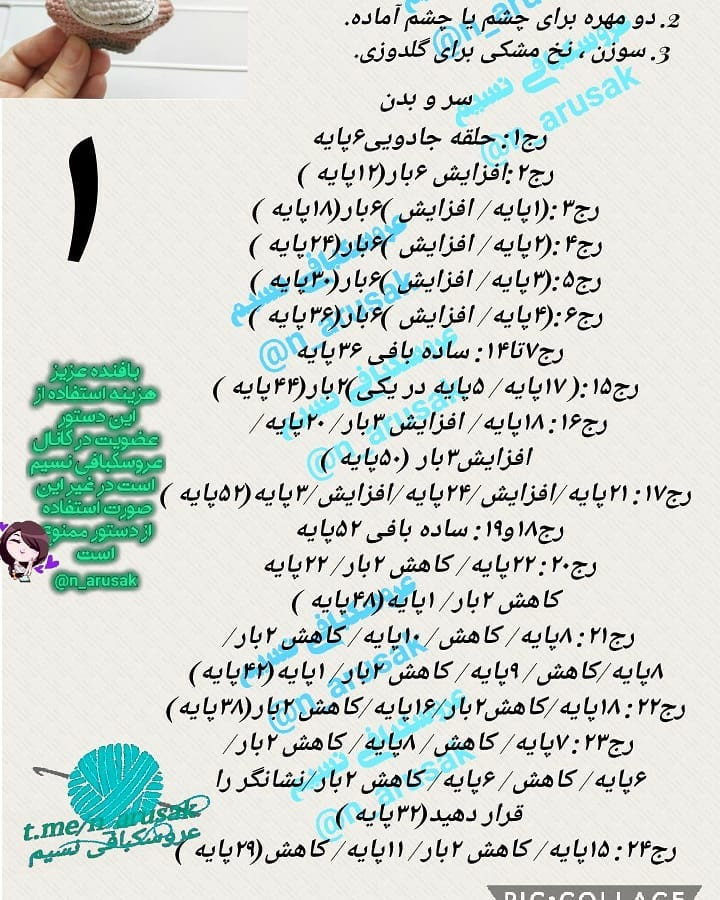 2. دو مهره برای چشم یا چشم آماده.
3. سوزن ، نخ مشکی برای گلدوزی.
سر و بدن
رج۱: حلقه جادویی۶پایه
رج۲:افزایش ۶بار(۱۲پایه )
رج۳:(۱پایه/ افزایش )۶بار(۱۸پایه )
رج۴:(۲پایه/ افزایش )۶بار(۲۴پایه )
رج۵:(۳پایه/ افزایش )۶بار(۳۰پایه )
رج۶:(۴پایه/ افزایش )۶بار(۳۶پایه )
رج۷تا۱۴: ساده بافی ۳۶پایه
رج۱۵:( ۱۷پایه/ ۵پایه در یکی)۲بار(۴۴پایه )
رج۱۶: ۱۸پایه/ افزایش ۳بار/ ۲۰پایه/
افزایش۳بار (۵۰پایه )
رج۱۷: ۲۱پایه/افزایش/۲۴پایه/افزایش/۳پایه(۵۲پایه )
رج۱۸و۱۹: ساده بافی ۵۲پایه
رج۲۰: ۲۲پایه/ کاهش ۲بار/ ۲۲پایه
کاهش ۲بار/ ۱پایه(۴۸پایه )
رج۲۱: ۸پایه/ کاهش/ ۱۰پایه/ کاهش ۲بار/
۸پایه/کاهش/ ۹پایه/ کاهش ۲بار/ ۱پایه(۴۲پایه)
رج۲۲: ۱۸پایه/کاهش۲بار/۱۶پایه/کاهش۲بار(۳۸پایه )
رج۲۳: ۷پایه/ کاهش/ ۸پایه/ کاهش ۲بار/
۶پایه/ کاهش/ ۶پایه/ کاهش ۲بار/نشانگر را
قرار دهید(۳۲پایه )
رج۲۴: ۱۵پایه/ کاهش ۲بار/ ۱۱پایه/ کاهش(۲۹پایه )
۱
بافنده عزیز
هزینه استفاده از
این دستور
عضویت در کانال
عروسکبافی نسیم
است در غیر این
صورت استفاده
از دستور ممنوع
است
@n_arusak
t.me/n_arusak
عروسکبافی نسیم
عروسکبافی نسیم
@n_arusak
عروسکبافی نسیم
@n_arusak
عروسکبافی نسیم
@n_arusak
عروسکبافی نسیم
@n_arusak
عروسکبافی نسیم
@n_arusak
PIC•COLLAGE